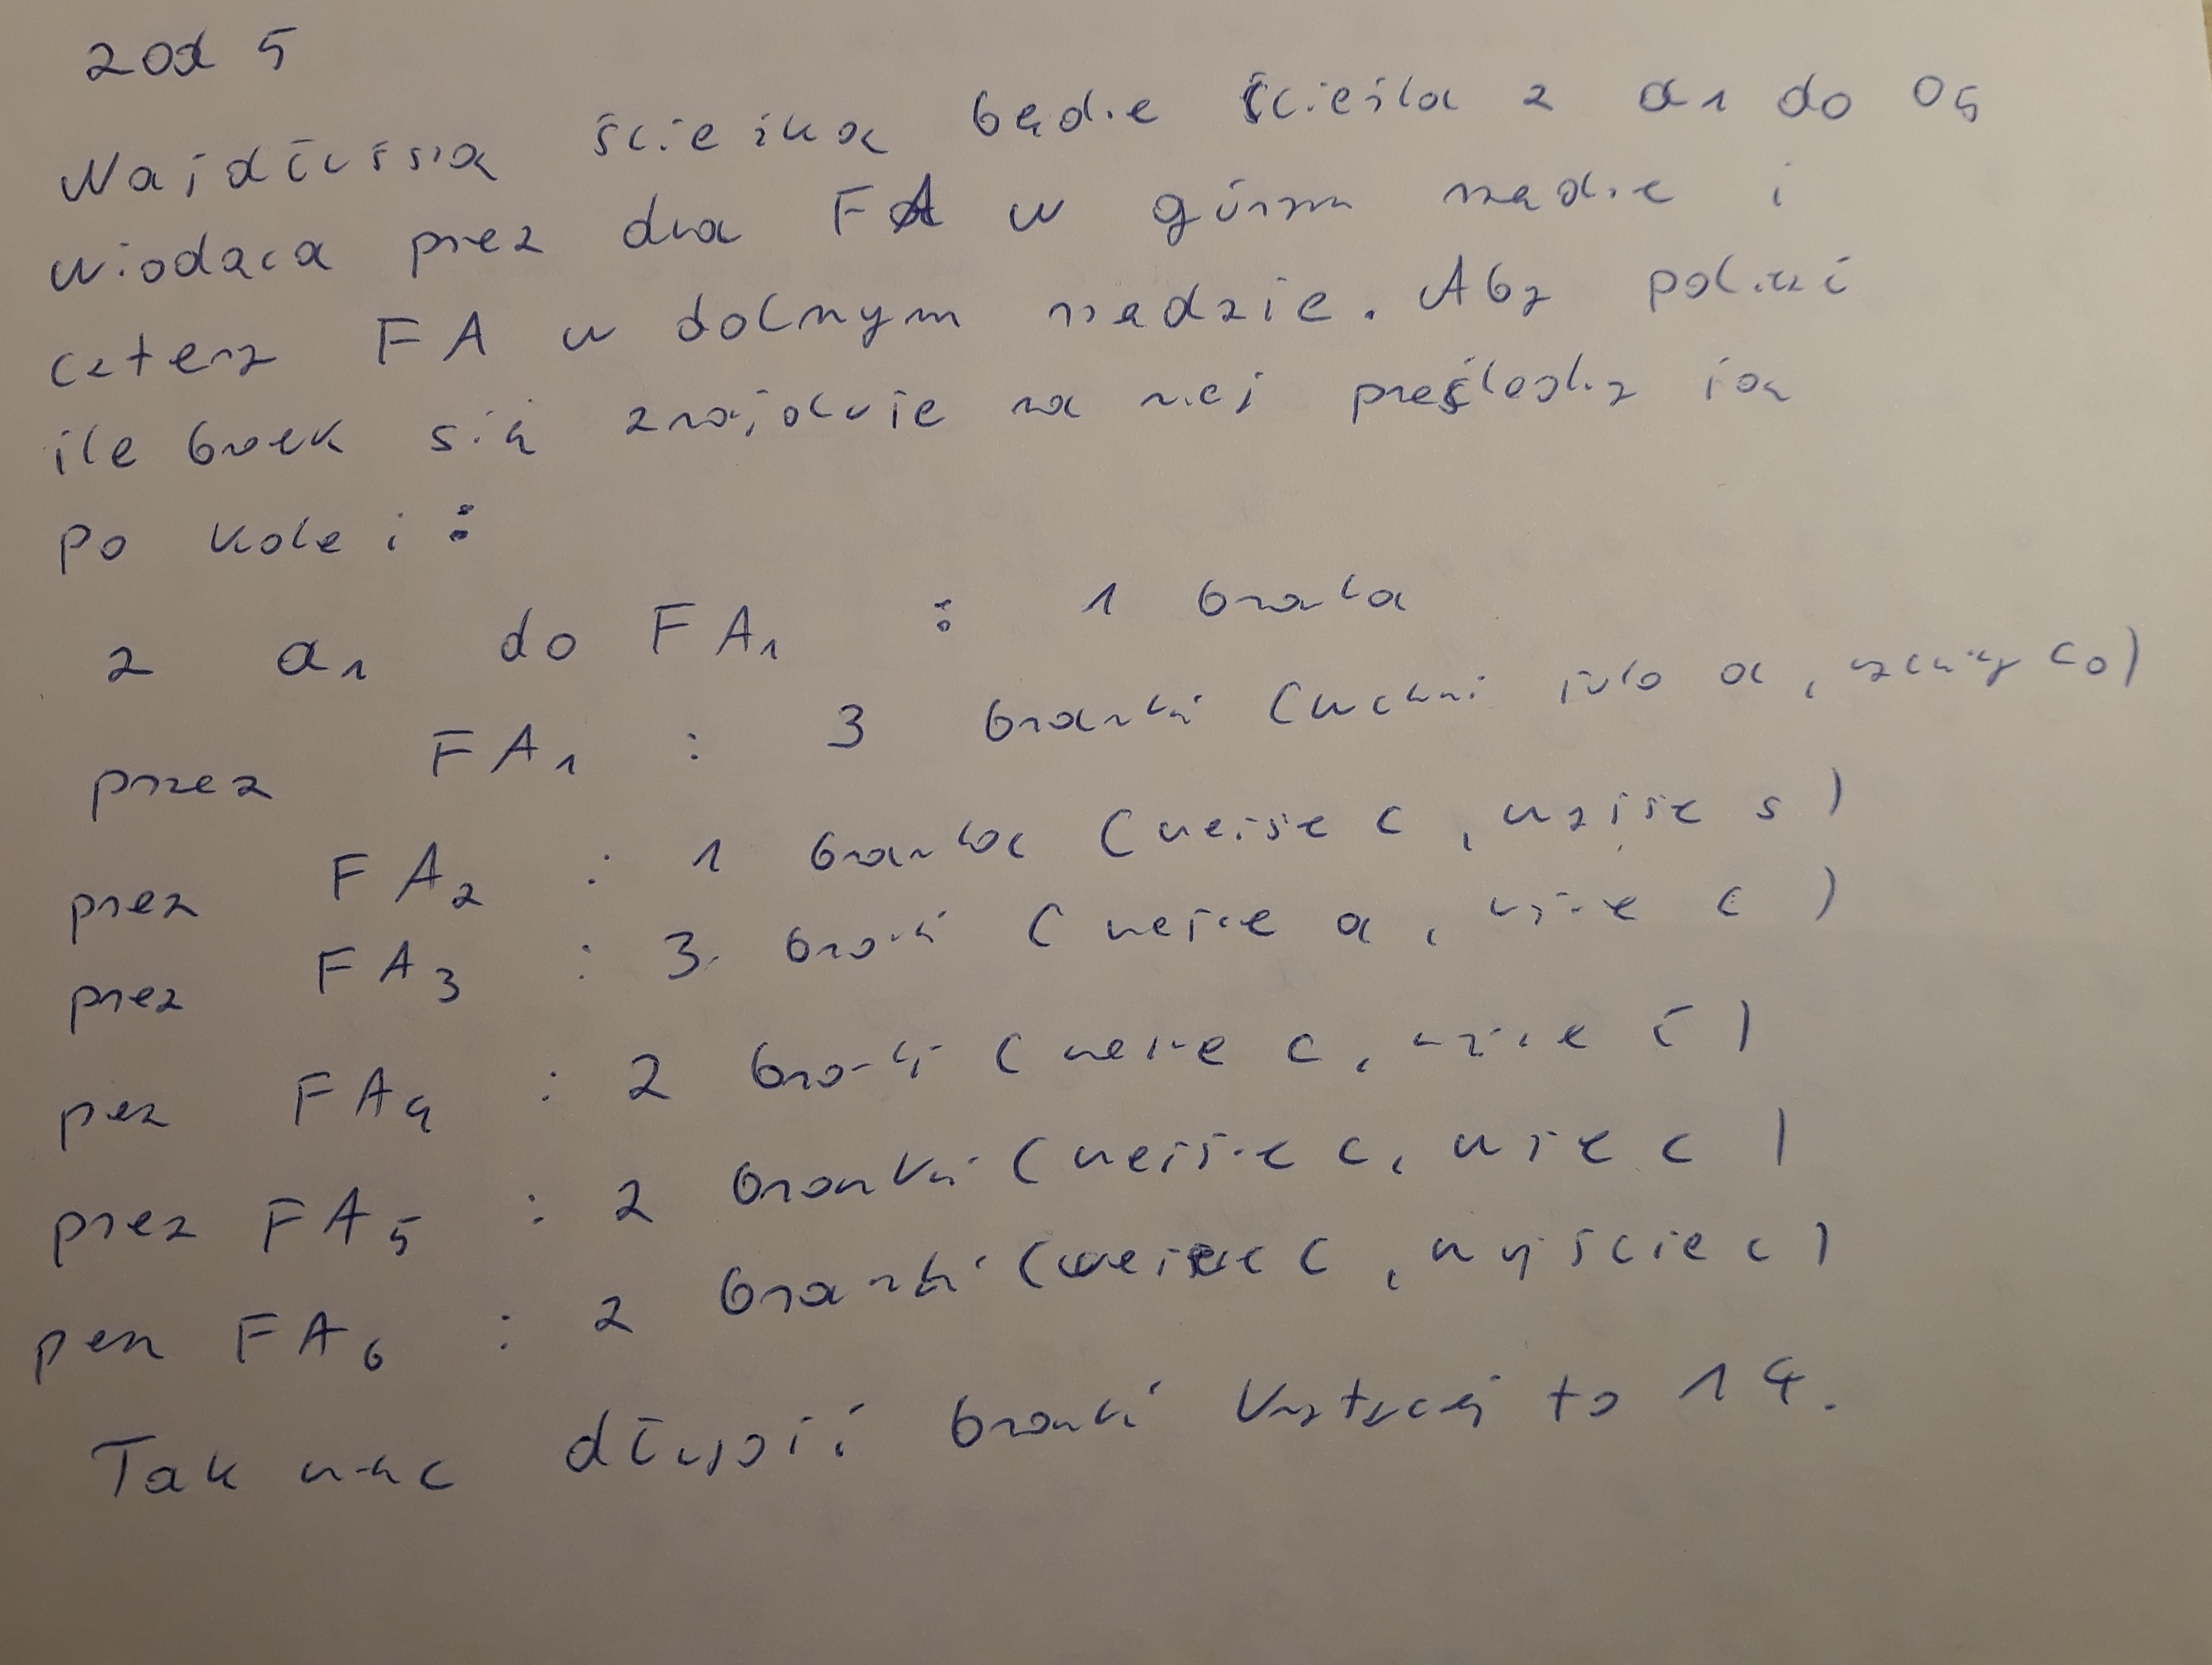 zad 5
Najdłuższa ścieżka będzie ścieżka z a1 do o5
wiodąca przez dwa FA w górnm rzędzie i
cztery FA w dolnym rzędzie. Aby policzć
ile bramek się znajduje na niej prześledzy ją
po kolei :
z a1 do FA1 : 1 bramka
przez FA1 : 3 bramki (wchodzi jako a, c0)
przez FA2 : 1 bramka (wejście c, wyjście s)
przez FA3 : 3 bramki (wejście a, wyjście c)
przez FA4 : 2 bramki (wejście c, wyjście c)
przez FA5 : 2 bramki (wejście c, wyjście c)
przez FA6 : 2 bramki (wejście c, wyjście c)
Tak więc długość to 14.